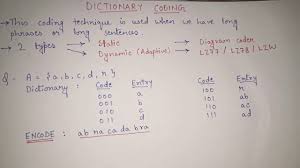 DICTIONARY CODING
→ This coding technique is used when we have long phrases or long sentences.
→ 2 types → Static → Diagram coder
→ Dynamic (Adaptive) → LZ77 / LZ78 / LZW
Q- A = {a, b, c, d, r}
Dictionary : Code Entry Code Entry
000 a 100 r
001 b 101 ab
010 c 110 ac
011 d 111 ad
ENCODE : ab ra ca da bra